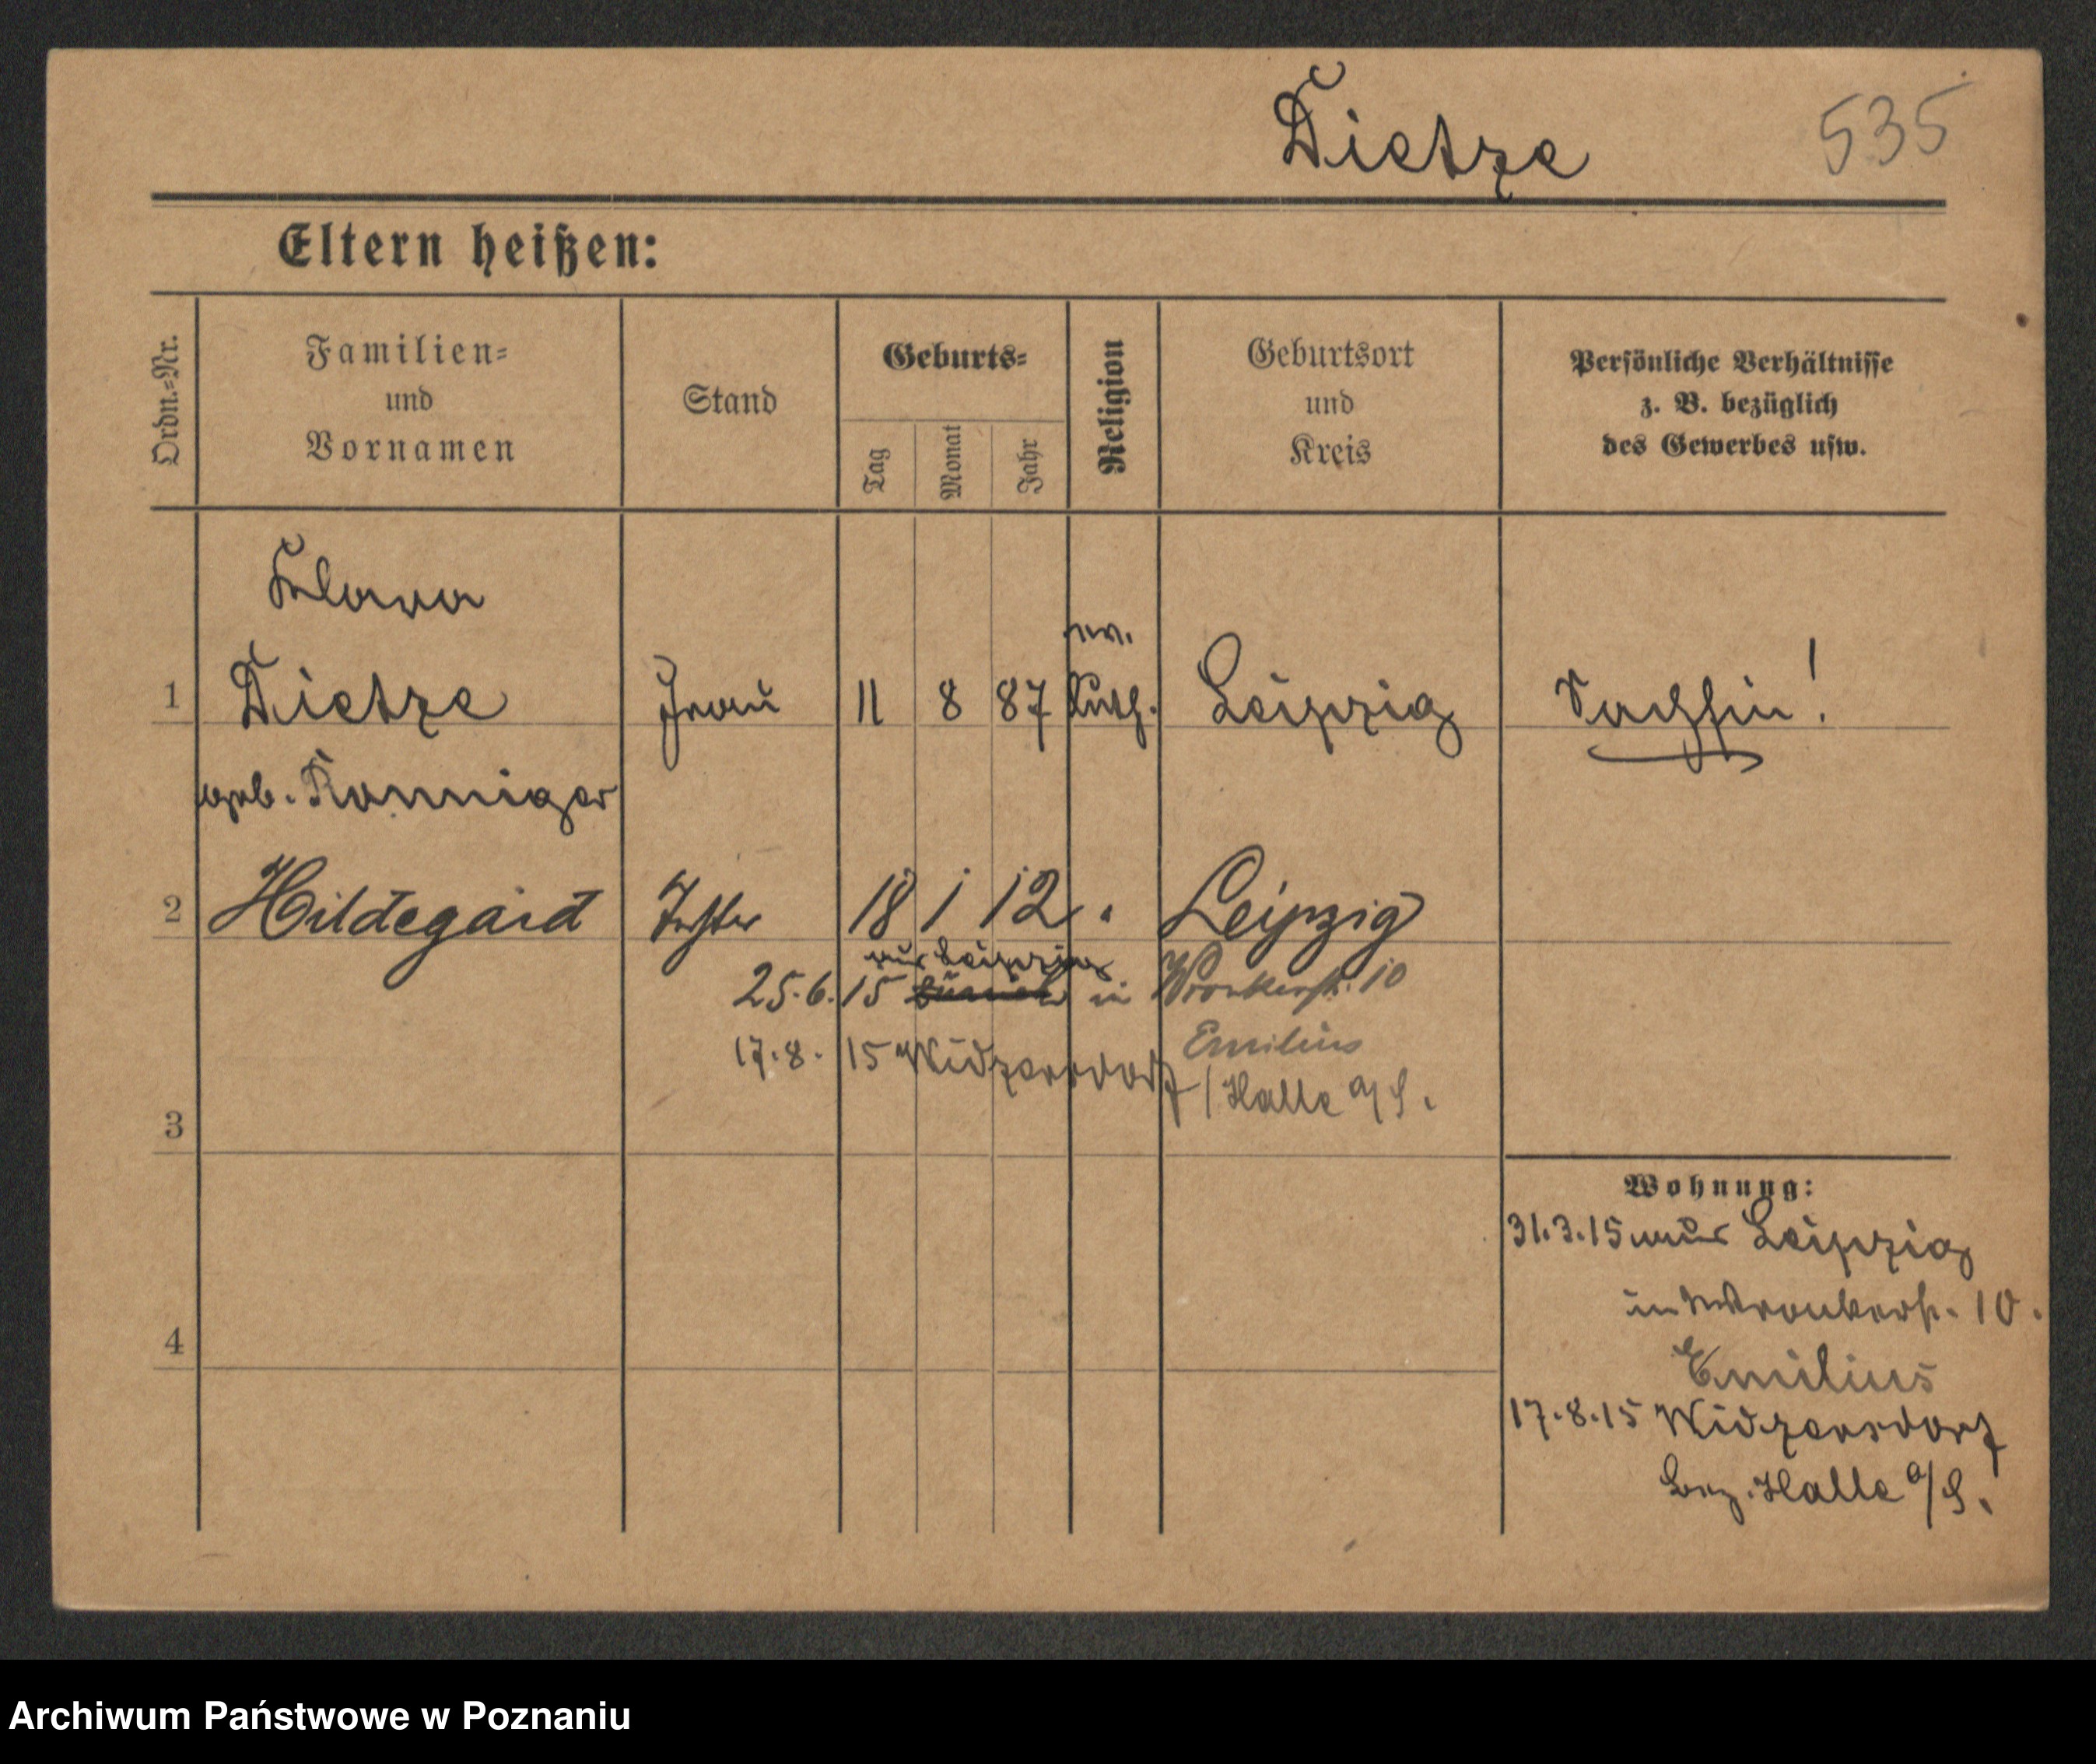 Dietze 535
Eltern heißen:
Ordn.-Nr.
Familien-
und
Vornamen
Stand
Geburts-
Tag
Monat
Jahr
Religion
Geburtsort
und
Kreis
Persönliche Verhältnisse
z. B. bezüglich
des Gewerbes usw.
Klara
ev.
1 Dietze Frau 11 8 87 luth. Leipzig Sächsin!
geb. Ranniger
2 Hildegard Tochter 18 1 12 Leipzig
aus Leipzig
25.6.15 in Wronkerstr. 10
Emilius
17.8.15 Widzersdorf / Halle a/S.
3
Wohnung:
31.3.15 aus Leipzig
in Wronkerstr. 10.
4
Emilius
17.8.15 Widzersdorf
Bez. Halle a/S.
Archiwum Państwowe w Poznaniu